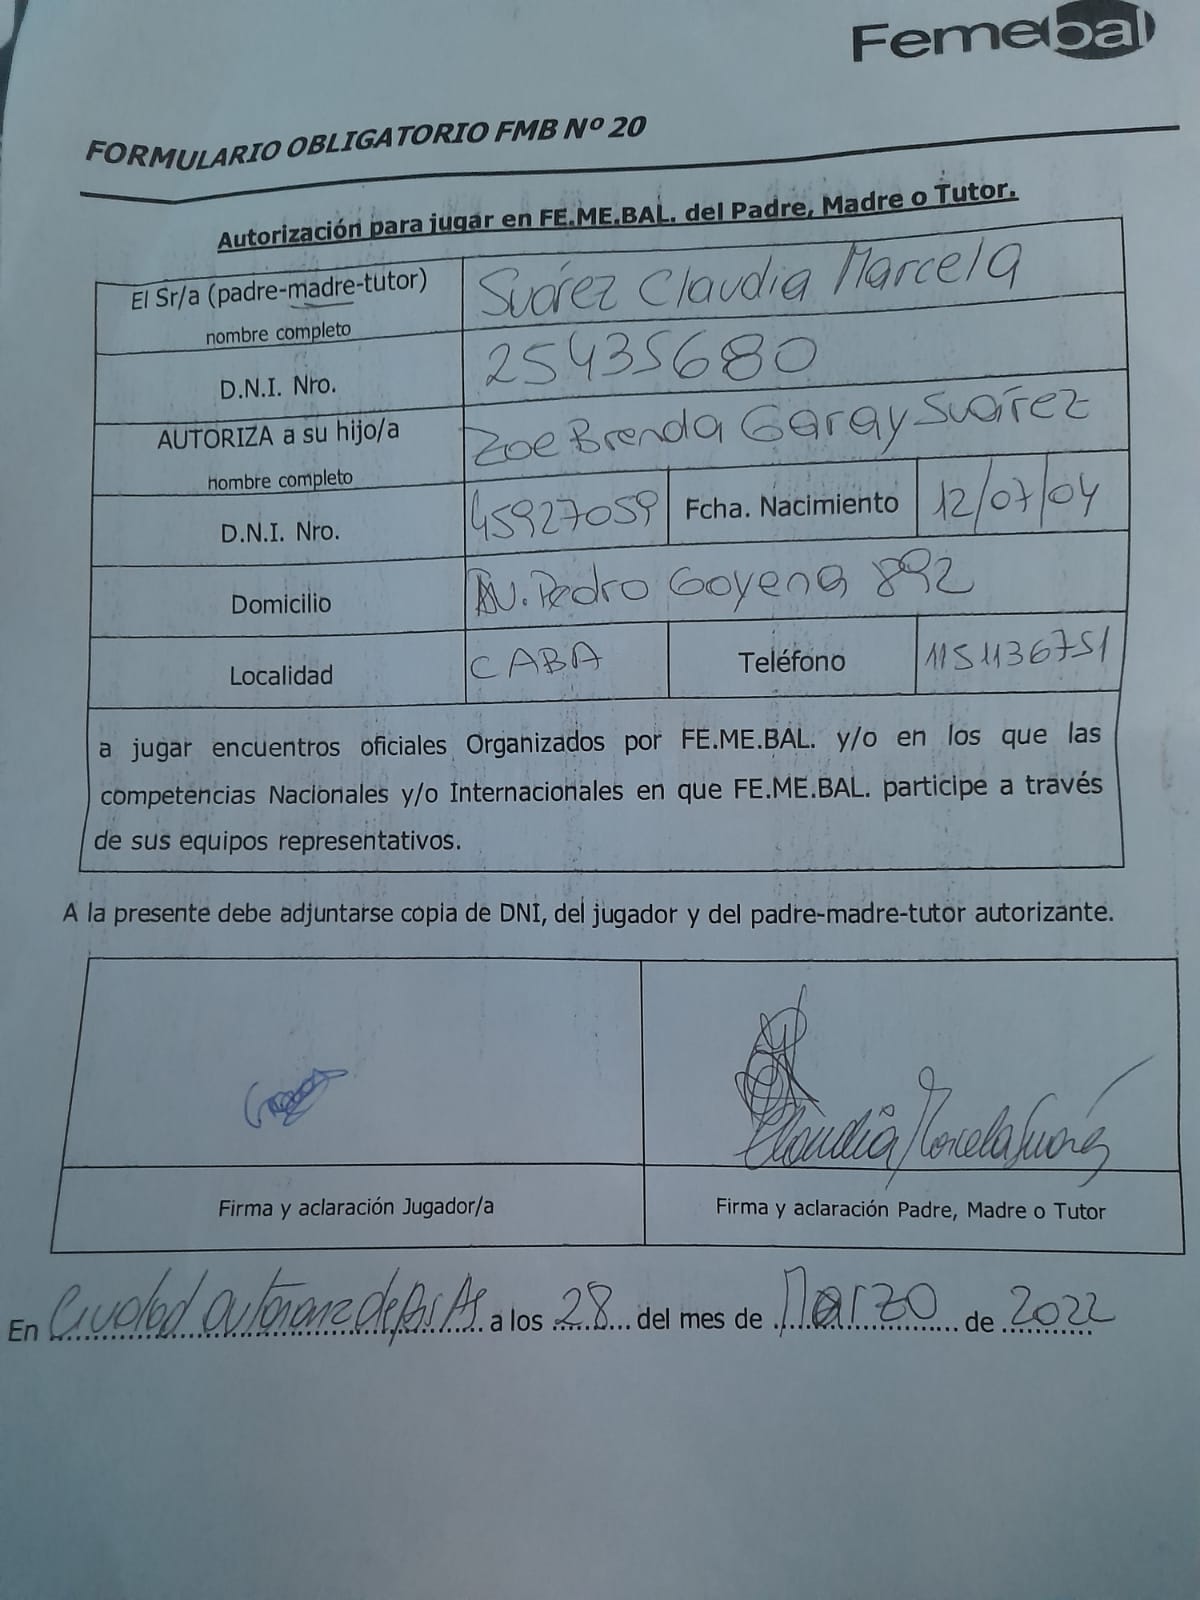 Femebal
FORMULARIO OBLIGATORIO FMB Nº 20
Autorización para jugar en FE.ME.BAL. del Padre, Madre o Tutor.
El Sr/a (padre-madre-tutor)
nombre completo
Suárez Claudia Marcela
D.N.I. Nro.
25435680
AUTORIZA a su hijo/a
nombre completo
Zoe Brenda Garay Suárez
D.N.I. Nro.
45927059
Fcha. Nacimiento
12/07/04
Domicilio
AV. Pedro Goyena 892
Localidad
CABA
Teléfono
1151136751
a jugar encuentros oficiales Organizados por FE.ME.BAL. y/o en los que las
competencias Nacionales y/o Internacionales en que FE.ME.BAL. participe a través
de sus equipos representativos.
A la presente debe adjuntarse copia de DNI, del jugador y del padre-madre-tutor autorizante.
Claudia Marcela Suárez
Firma y aclaración Jugador/a
Firma y aclaración Padre, Madre o Tutor
En Ciudad de Bs As a los 28 del mes de Marzo de 2022